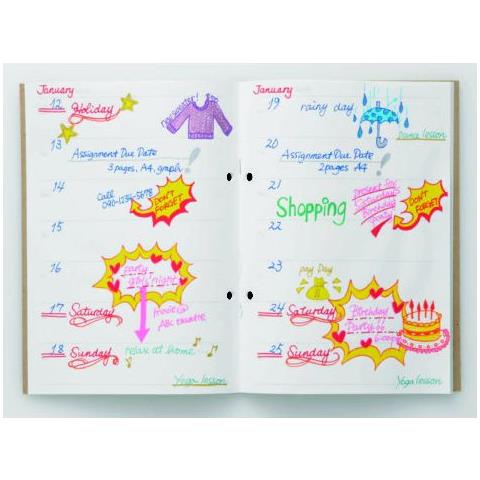 January
12 Holiday
13
Assignment Due Date
3 pages, A4, graph
14
Call
090-1234-5678
DON'T
FORGET!
15
16
party
girls' night
17 Saturday
meet @
ABC theatre
18 Sunday
relax at home...
Yoga lesson
January
19 rainy day
Dance lesson
20
Assignment Due Date
2 pages A4
21
Shopping
present for
Saturday
Birthday
Party
DON'T
FORGET!
22
23
pay Day
24 Saturday
Birthday
Party @
25 Sunday
Yoga lesson